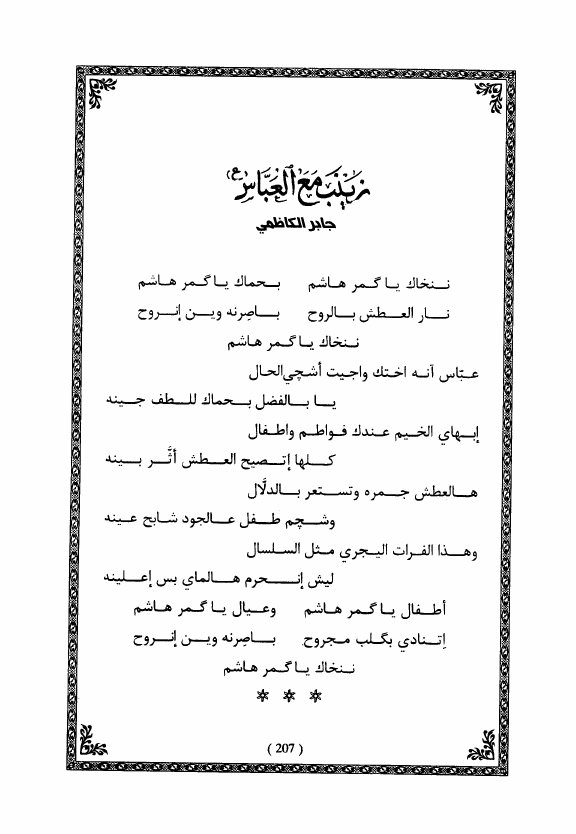 زينب مع العباس (ع)
جابر الكاظمي
ننخاك يا گمر هاشم بحماك يا گمر هاشم
نار العطش بالروح باصرنه وين إنروح
ننخاك يا گمر هاشم
عبّاس آنه اختك واجيت أشچي الحال
يا بالفضل بحماك للطف جينه
إبهاي الخيم عندك فواطم واطفال
كلها إتصيح العطش أثَّر بينه
هالعطش جمره وتستعر بالدلَّال
وشچم طفل عالجود شابح عينه
وهذا الفرات اليجري مثل السلسال
ليش إنحرم هالماي بس إعلينه
أطفال يا گمر هاشم وعيال يا گمر هاشم
إتنادي بگلب مجروح باصرنه وين إنروح
ننخاك يا گمر هاشم
( 207 )